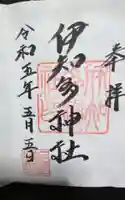 奉拝
伊知多神社
令和五年五月五日